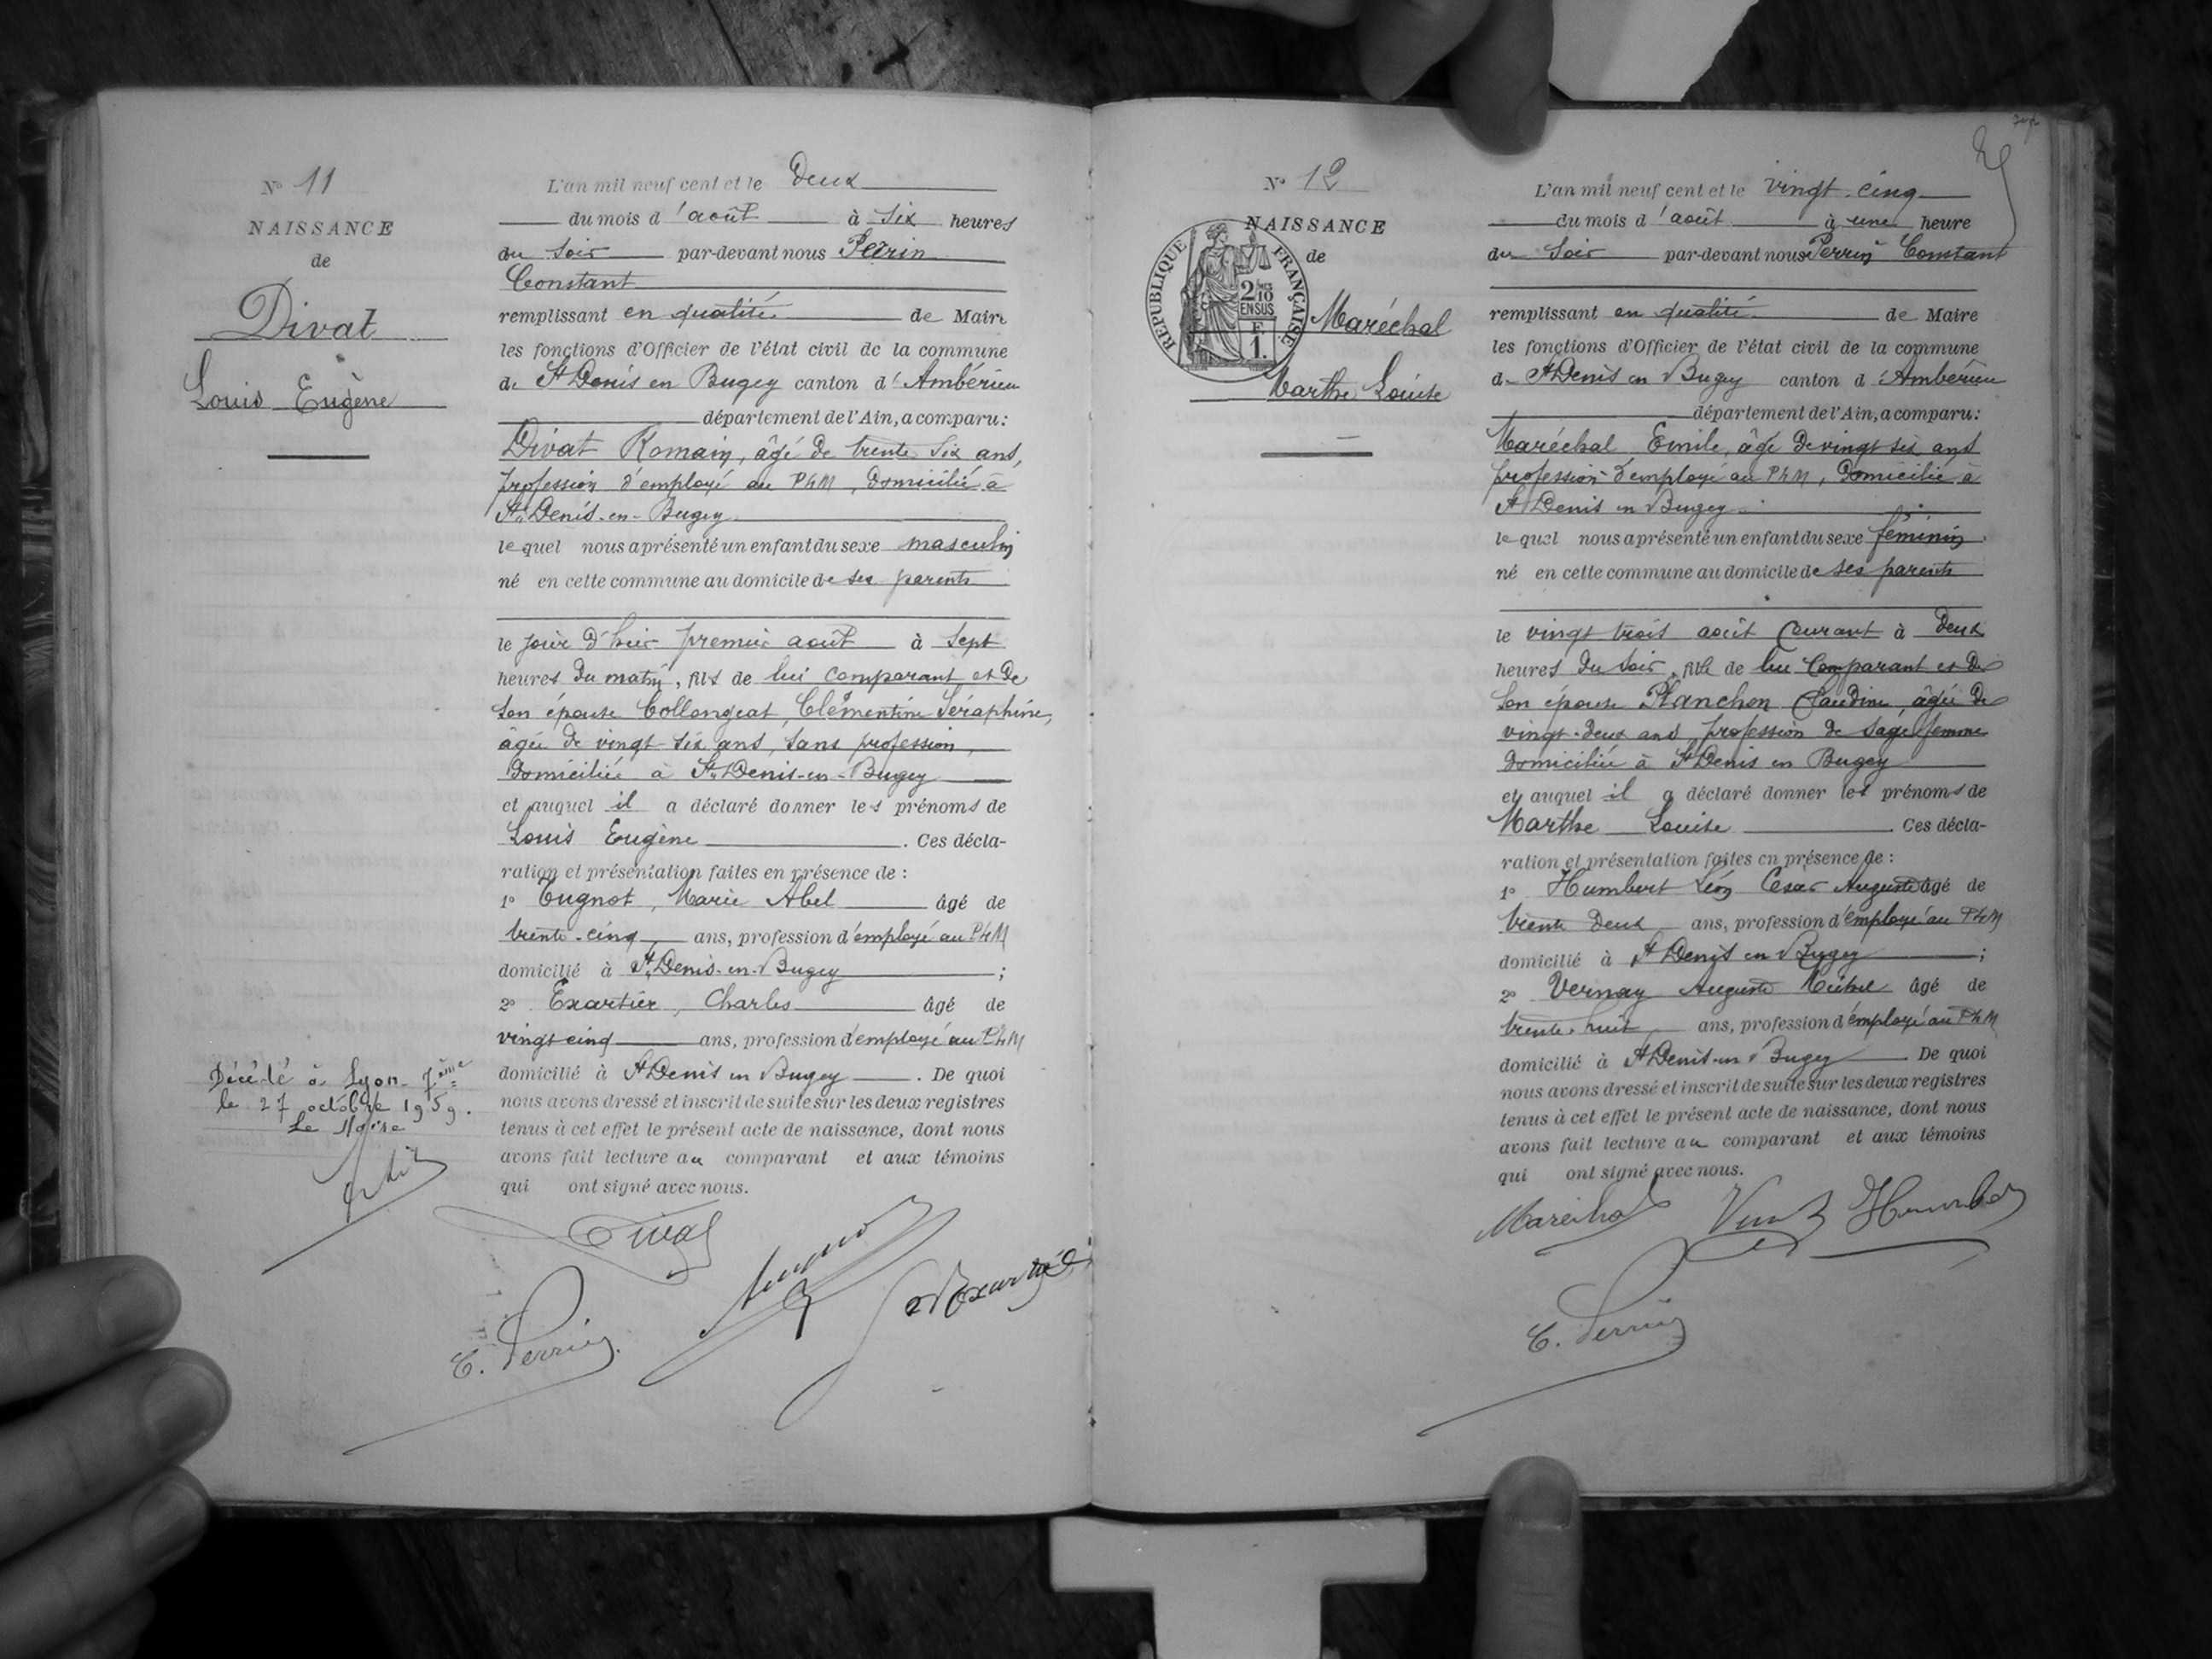 N° 11
NAISSANCE
de
Divat
Louis Eugène
L'an mil neuf cent et le Deux
du mois d'août à Six heures
du Soir par-devant nous Perrin
Constant
remplissant en qualité de Maire
les fonctions d'Officier de l'état civil de la commune
de St Denis en Bugey canton d'Ambérieu
département de l'Ain, a comparu :
Divat Romain, âgé de trente six ans,
profession d'employé au PLM, domicilié à
St Denis-en-Bugey
lequel nous a présenté un enfant du sexe masculin
né en cette commune au domicile de ses parents
le jour d'hier premier août à Sept
heures du matin, fils de lui comparant et de
Son épouse Collongeat, Clémentine Séraphine,
âgée de vingt-six ans, sans profession,
domiciliée à St Denis-en-Bugey
et auquel il a déclaré donner les prénoms de
Louis Eugène. Ces décla-
ration et présentation faites en présence de :
1° Tugnot, Marie Abel âgé de
trente-cinq ans, profession d'employé au PLM
domicilié à St Denis-en-Bugey ;
2° Exartier, Charles âgé de
vingt cinq ans, profession d'employé au PLM
domicilié à St Denis en Bugey. De quoi
nous avons dressé et inscrit de suite sur les deux registres
tenus à cet effet le présent acte de naissance, dont nous
avons fait lecture au comparant et aux témoins
qui ont signé avec nous.
Décédé à Lyon 7ème
le 27 octobre 1959.
Le Maire
Divat
C. Perrin
N° 12
NAISSANCE
de
RÉPUBLIQUE FRANÇAISE
2/10
EN SUS
1.
Maréchal
Marthe Louise
L'an mil neuf cent et le vingt-cinq
du mois d'août à une heure
du Soir par-devant nous Perrin Constant
remplissant en qualité de Maire
les fonctions d'Officier de l'état civil de la commune
de St Denis en Bugey canton d'Ambérieu
département de l'Ain, a comparu :
Maréchal Emile, âgé de vingt six ans
profession d'employé au PLM, domicilié à
St Denis en Bugey
lequel nous a présenté un enfant du sexe féminin
né en cette commune au domicile de ses parents
le vingt trois août Courant à Deux
heures du soir, fille de lui Comparant et de
Son épouse Planchon Claudine, âgée de
vingt-deux ans, profession de sage femme
domiciliée à St Denis en Bugey
et auquel il a déclaré donner les prénoms de
Marthe Louise. Ces décla-
ration et présentation faites en présence de :
1° Humbert Léon César Auguste âgé de
trente Deux ans, profession d'employé au PLM
domicilié à St Denis en Bugey ;
2° Vernay Auguste Michel âgé de
trente-huit ans, profession d'employé au PLM
domicilié à St Denis-en Bugey. De quoi
nous avons dressé et inscrit de suite sur les deux registres
tenus à cet effet le présent acte de naissance, dont nous
avons fait lecture au comparant et aux témoins
qui ont signé avec nous.
Maréchal Humbert
C. Perrin